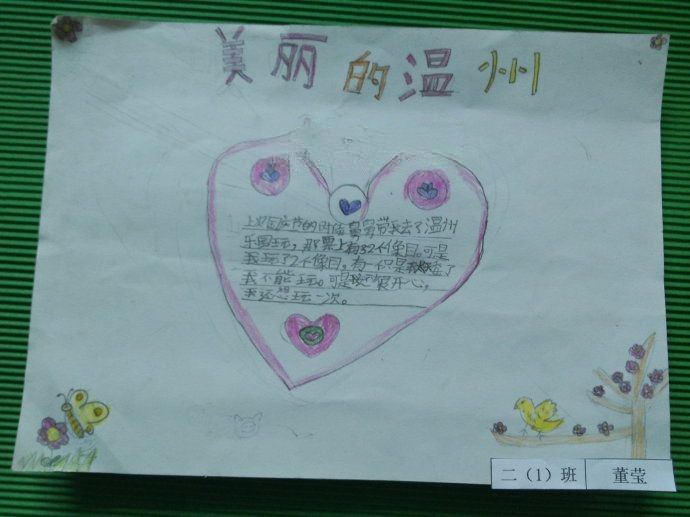 美丽的温州
国庆节的时候舅舅带我去了温州
乐园玩，那票上有32个像目。可是
我玩了2个像目。有一只是我
我不能玩。可是我很开心，
我还想玩一次。
二（1）班 董莹